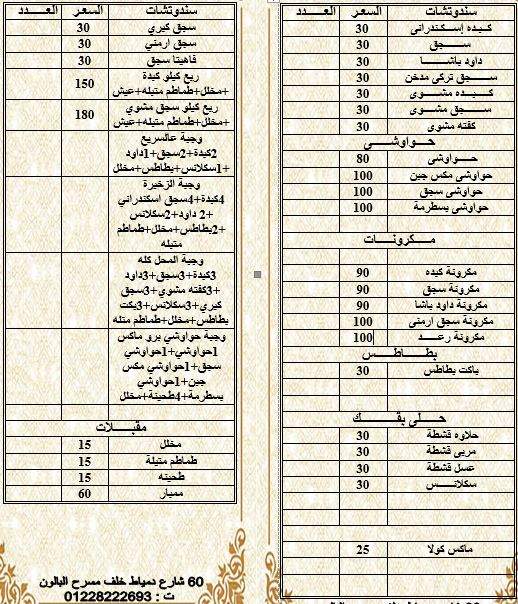 سندوتشات السعر العدد
كبده إسكندرانى 30
سجق 30
داود باشا 30
سجق تركى مدخن 30
كبده مشوى 30
سجق مشوى 30
كفته مشوى 30
حواوشى
حواوشى 80
حواوشى مكس جبن 100
حواوشى سجق 100
حواوشى بسطرمة 100
مكرونات
مكرونة كبده 90
مكرونة سجق 90
مكرونة داود باشا 90
مكرونة سجق ارمنى 100
مكرونة رعد 100
بطاطس
باكت بطاطس 30
حلى بقك
حلاوه قشطة 30
مربى قشطة 30
عسل قشطة 30
سكلانس 30
ماكس كولا 25
سندوتشات السعر العدد
سجق كيري 30
سجق ارمني 30
فاهيتا سجق 30
ربع كيلو كبدة
+مخلل+طماطم متبله+عيش 150
ربع كيلو سجق مشوي
+مخلل+طماطم متبله+عيش 180
وجبة عالسريع
2كبدة+2سجق+1داود
+1سكلانس+بطاطس+مخلل
وجبة الزخيرة
4كبدة+4سجق اسكندراني
+2 داود+2سكلانس
+2بطاطس+مخلل+طماطم
متبله
وجبة المحل كله
3كبدة+3سجق+3داود
+3كفته مشوي+3سجق
كيري+3سكلانس+3بكت
بطاطس+مخلل+طماطم متله
وجبة حواوشي برو ماكس
1حواوشي+1حواوشي
سجق+1حواوشي مكس
جبن+1حواوشي
بسطرمة+4طحينة+مخلل
مقبلات
مخلل 15
طماطم متبلة 15
طحينه 15
ممبار 60
60 شارع دمياط خلف مسرح البالون
ت : 01228222693